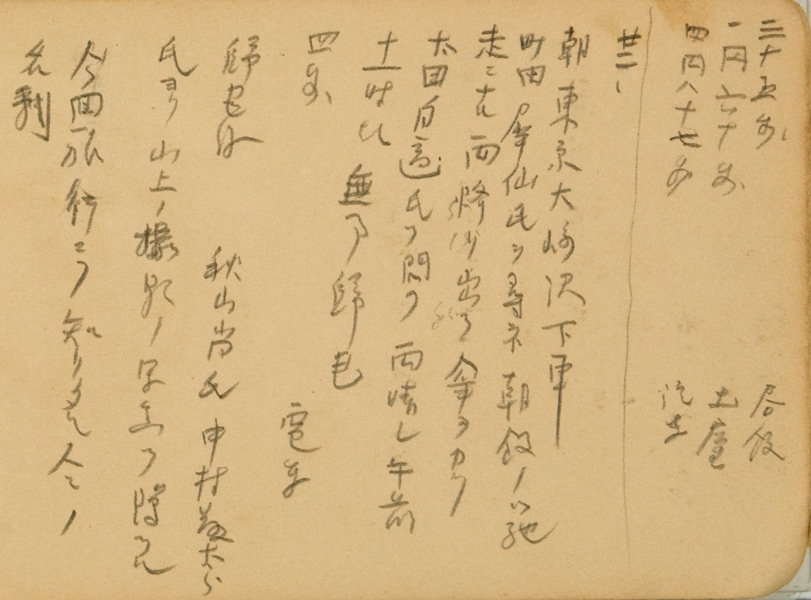 三十五銭 昼飯
一円六十銭 土産
四円八十七銭 汽車
廿二、
朝東京大崎沢下車
町田犀仙氏ヲ尋ネ朝飯ノ馳
走ニナル雨降リ出ス傘ヲカリ
太田百適氏ヲ問フ雨晴レ午前
十一時ヒ無事帰宅
四銭 電車
帰宅後 秋山尚氏中村義太郎
氏ヨリ山上ノ撮影ノ写真ヲ贈ラル
今回旅行ニテ知リタル人々ノ
名刺